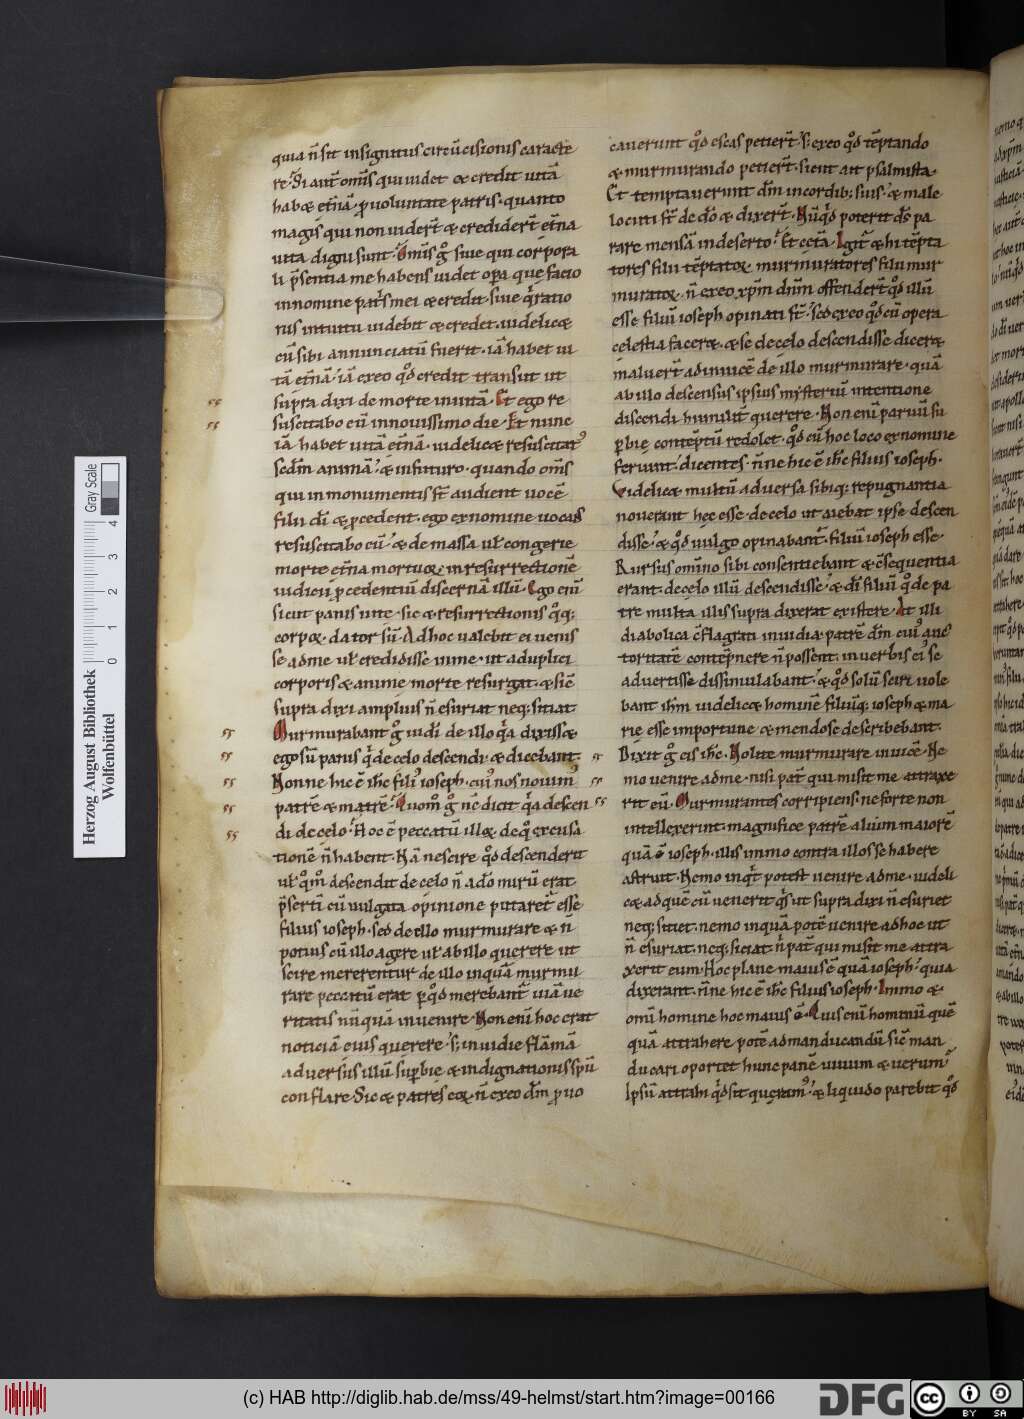 quia n̄ sit insignitus circūcisionis caracte
re. Si aut̄ om̄s qui uidet & credit uitā
hab& et̄nā. ꝓ uoluntate patris. quanto
magis qui non uidert̄ & credidert̄ et̄na
uita digni sunt. Om̄is g̊ siue qui corpora
li p̄sentia me habens uidet opa que facio
innomine patris mei & credit. siue
rationis intuitu uidebit & credet. uidelic&
cū sibi annunciatū fuerit. iā habet ui
tā et̄nā. iā exeo qd̊ credit transiit ut
supra dixi de morte inuitā. Et ego re
suscitabo eū innouissimo die. Et nunc
iā habet uitā et̄nā. uidelic& resuscitat᷒
scdm̄ animā. & infuturo. quando om̄s
qui in monumentis st̄ audient uocē
filii dī & ꝓcedent. ego exnomine uocās
resuscitabo eū. & de massa ul̄ congerie
morte et̄na mortuoꝝ. in resurrectionē
uidicii ꝓcedentiū discernā illū. Ego enī
sicut panis uite. sic & resurrectionis qͦq;
corpoꝝ. dator sū. Adhoc ualebit ei uenis
se adme ul̄ credidisse inme. ut aduplici
corporis & anime morte resurgat. & sic̄
supra dixi amplius n̄ esuriat neq; sitiat
Murmurabant g̊ iudī de illo qa dixiss&
ego sū panis qͥ de celo descendi. & dicebant.
Nonne hic ē ih̄c fili᷒ ioseph. cui᷒ nos nouim᷒
patrē & matrē. Quom̊ g̊ nc̄ dicit qa descen
di de celo. Hoc ē peccatū illoꝝ. de qͦ excusa
tionē n̄ habent. Nā nescire qd̊ descenderit
ul̄ qm̊ descendit de celo n̄ adeō mirū erat
p̄sertī cū uulgata opinione putaret̄ esse
filius ioseph. sed de illo murmurare & n̄
potius cū illo agere ul̄ ab illo querere ut
scire mererentur de illo inquā murmu
rare peccatū erat ꝑ qd̊ merebant̄ uiā ue
ritatis nūquā inuenire. Non enī hoc erat
noticiā eius querere. s; inuidie flāmā
aduersus illū supbie & indignationis spū
conflare. Sic & patres eoꝝ. n̄ exeo dm̄ ꝓuo
cauerunt qd̊ escas petiert̄. s; exeo qd̊ tēptando
& murmurando petiert̄. sicut ait psalmista.
Et temptauerunt dm̄ incordib; suis. & male
locuti st̄ de do & dixert̄. Nūqd poterit ds̄ pa
rare mensā indeserto. Et cetā. Igit̄ & hi tēpta
tores filii tēptatoꝝ. murmuratores filii mur
muratoꝝ. n̄ exeo xpm̄ dnm̄ offendert̄ qd̊ illū
esse filiū ioseph opinati st̄. sed exeo qd̊ eū opera
celestia facere. & se decelo descendisse dicere
maluert̄ adinuicē de illo murmurare. quā
ab illo descensus ipsius mysteriū intentione
discendi humilit̄ querere. Non enī paruū su
ꝑbie contēptū redolet. qd̊ eū hoc loco exnomine
feriunt. dicentes. n̄ne hic ē ih̄c filius ioseph.
Videlic& multū aduersa sibiq; repugnantia
nouerant hec esse. decelo ut aiebat ipse descen
disse. & qd̊ uulgo opinabant̄. filiū ioseph esse.
Rursus omīno sibi consentiebant & c̄sequentia
erant. decelo illū descendisse. & dī filiū qd̊ de pa
tre multa illis supra dixerat existere. At illi
diabolica c̄flagrati inuidia. patrē dm̄ cui᷒ auc
toritatē contēpnere n̄ possent. in uerbis ei᷒ se
aduertisse dissimulabant. & qd̊ solū sciri uole
bant ih̄m uidelic& hominē filiūq; ioseph & ma
rie esse importune & mendose describebant.
Dixit g̊ eis ih̄c. Nolite murmurare inuicē. Ne
mo uenire adme. nisi pat̄ qui misit me attraxe
rit eū. Murmurantes corripiens. ne forte non
intellexerint. magnifice patrē aliūm maiorē
quā ē ioseph. illis immo contra illos se habere
astruit. Nemo inqt̄ potest uenire adme. uideli
c& adquē cū uenerit qs̄ ut supra dixi n̄ esuriet
neq; sitiet. nemo inquā potē uenire adhoc ut
n̄ esuriat. neq; siciat n̄ pat̄ qui misit me attra
xerit eum. Hoc plane maius ē quā ioseph. quia
dixerant. n̄ne hic ē ih̄c filius ioseph. Immo &
omī homine hoc maius ē. Quis enī hominū quē
quā attrahere potē admanducandū sic̄ man
ducari oportet hunc panē uiuum & uerum.
Ipsū attrahi qd sit querim᷒. & liquido parebit qd̊
Herzog August Bibliothek
Wolfenbüttel
Gray Scale
0 1 2 3 4
(c) HAB http://diglib.hab.de/mss/49-helmst/start.htm?image=00166
DFG
cc BY SA